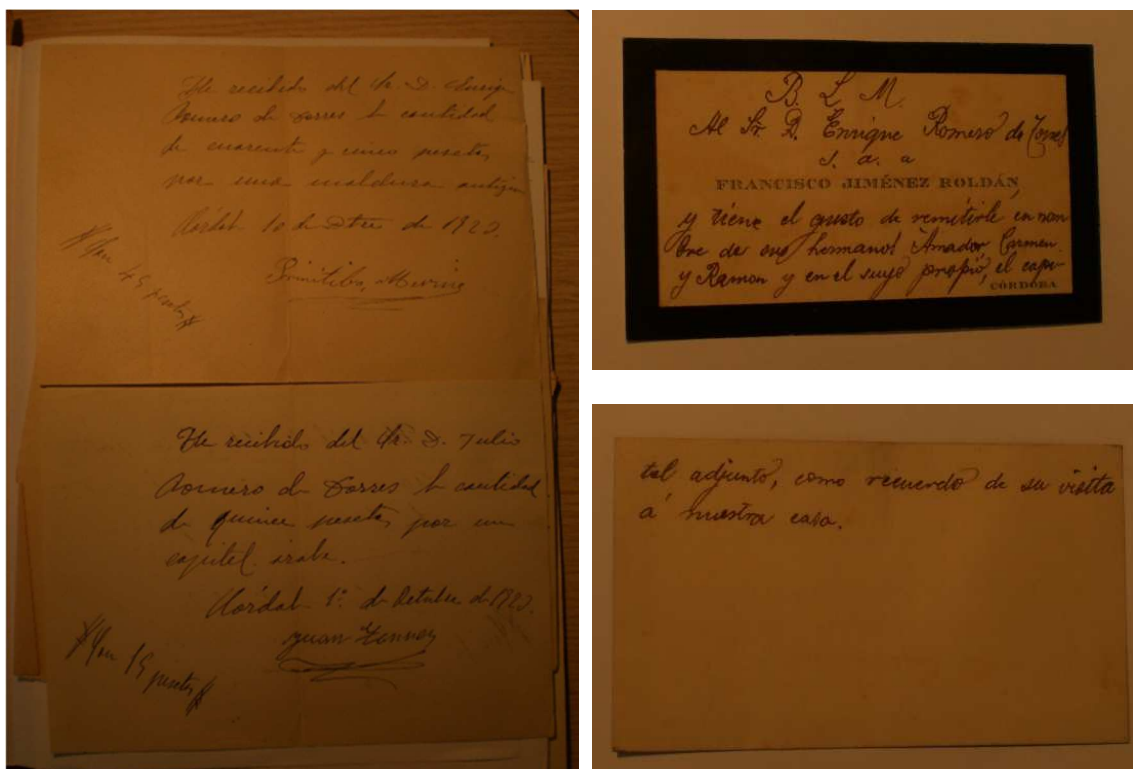 He recibido del Sr. D. Enriq
Romero de Torres la cantidad
de cuarenta y cinco pesetas
por una moldura antigua
Córdoba 10 de Dtre de 1922.
Primitibo Merino
Son 45 pesetas
He recibido del Sr. D. Julio
Romero de Torres la cantidad
de quince pesetas por un
capitel arabe.
Córdoba 1º de Octubre de 1922.
Juan
Son 15 pesetas
B. L. M.
Al Sr. D. Enrique Romero de Torres
s. a. a
FRANCISCO JIMÉNEZ ROLDÁN
y tiene el gusto de remitirle en nom
bre de sus hermanos Amador, Carmen
y Ramon y en el suyo propio, el capi-
CÓRDOBA
tel adjunto, como recuerdo de su visita
á nuestra casa.